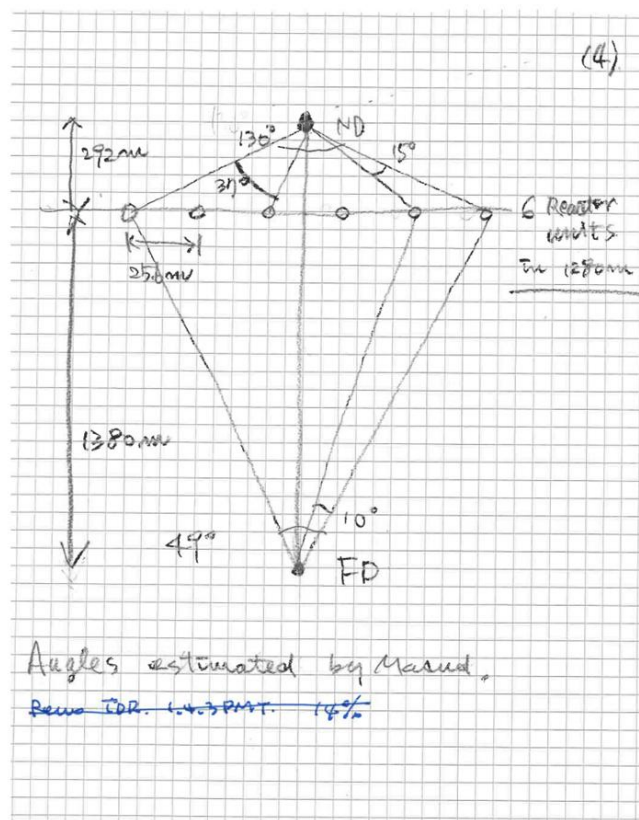 (4)
ND
130°
292m
15°
37°
6 Reactor
units
in 1280m
256m
1380m
10°
49°
FD
Angles estimated by Masud.
Reno TDR. 1.4.3 PMT. 14%